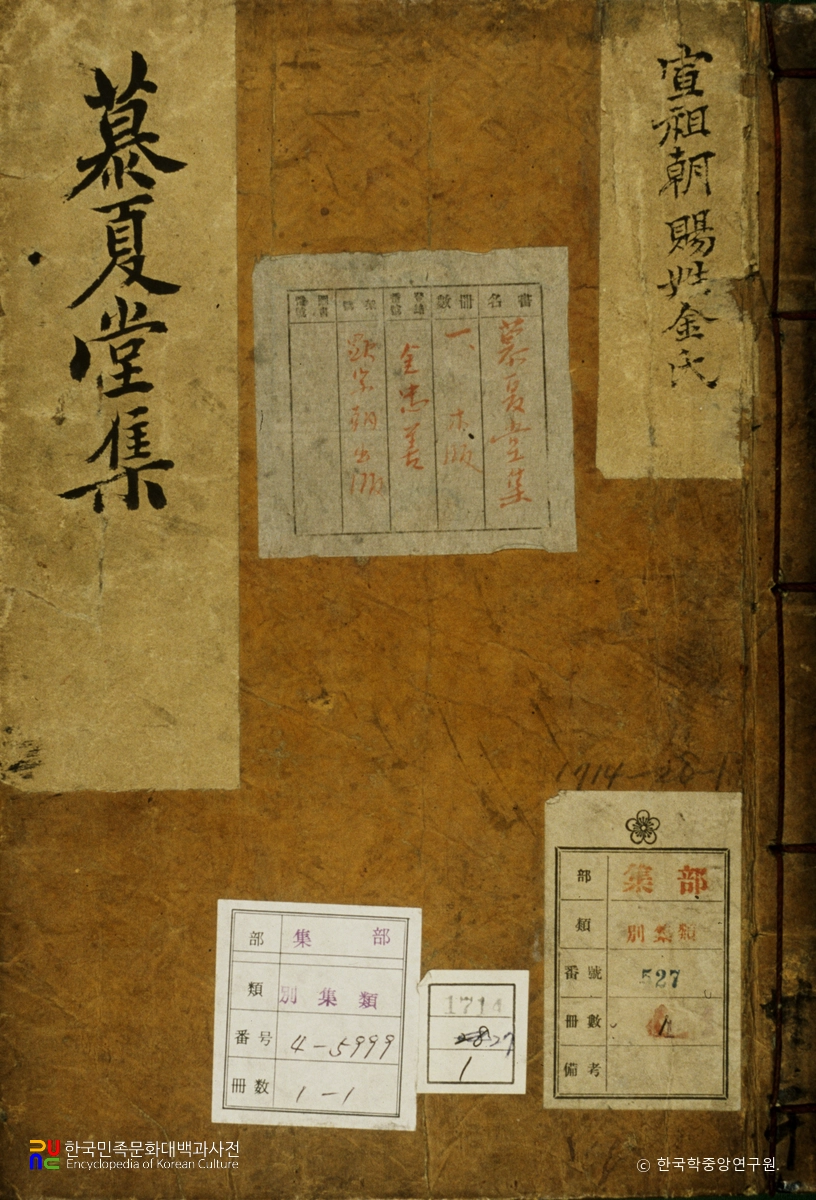 慕夏堂集
宣祖朝賜姓金氏
書名 冊數
慕夏堂集
一、木版
金忠善
朝出版
1714-28-1
部 集部
類 別集類
番號 527
冊數 1
備考
部 集部
類 別集類
番号 4-5999
冊数 1-1
1714
1
한국민족문화대백과사전
Encyclopedia of Korean Culture
© 한국학중앙연구원